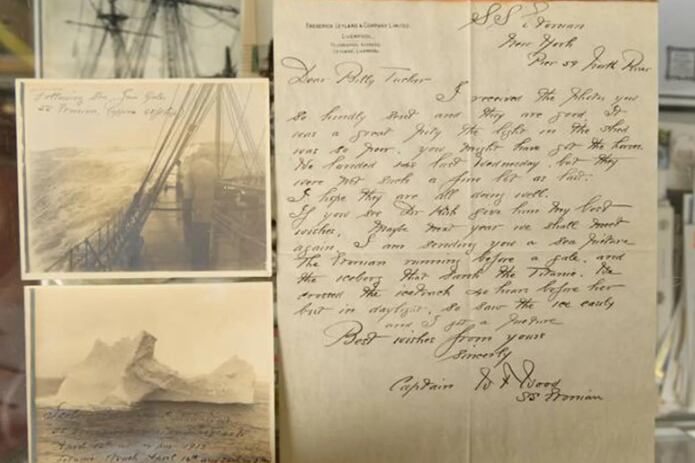 FREDERICK LEYLAND & COMPANY LIMITED.
LIVERPOOL.
TELEGRAPHIC ADDRESS,
LEYLAND, LIVERPOOL
SS Etonian
New York
Pier 59 North River
Dear Billy Tucker
I received the photos you
so kindly sent and they are good. It
was a great pity the light in the shed
was so poor. you might have got the horses.
We landed last Wednesday, but they
were not such a fine lot as last.
I hope they are all doing well.
If you see give him my best
wishes. Maybe next year we shall meet
again. I am sending you a sea picture
The Etonian running before a gale. and
the iceberg that sank the Titanic. We
crossed the icetrack 40 hours before her
but in daylight. so saw the ice easily
and I got a picture
Best wishes from yours
Sincerely
Captain W F Wood
SS Etonian
Following Sea,
SS Etonian,
April 12th 1912
Titanic struck April 14th